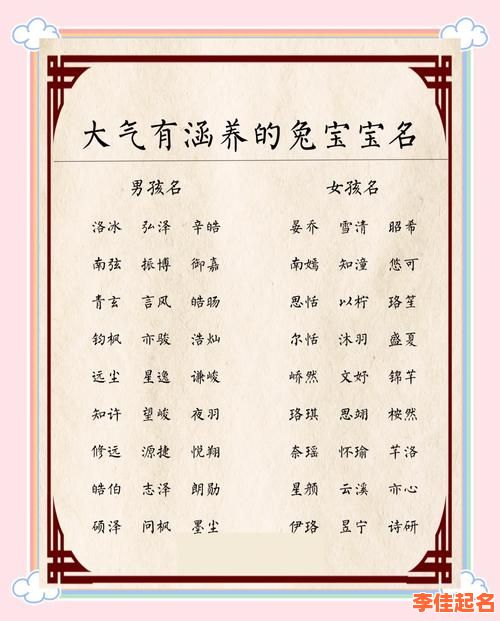 大气有涵养的兔宝宝名
男孩名 女孩名
洛冰 弘泽 辛皓 晏乔 雪清 昭希
南弦 振博 御嘉 南嫣 知潼 悠可
青玄 言风 皓旸 思恬 以柠 珞笙
钧枫 亦骏 浩灿 尔恬 沐羽 盛夏
远尘 星逸 谦峻 峤然 文妤 锦芊
知许 望峻 夜羽 珞琪 思翊 桉然
修远 源捷 悦翔 奈瑶 怀瑜 芊洛
皓伯 志泽 朗勋 星颜 云溪 亦心
硕泽 问枫 墨尘 伊珞 昱宁 诗研
李佳起名